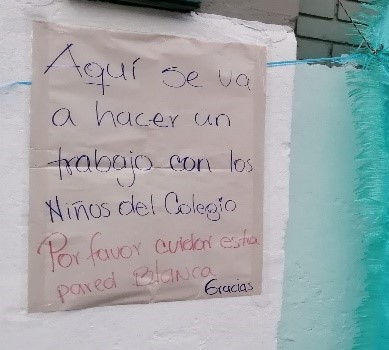 Aquí se va
a hacer un
trabajo con los
Niños del Colegio
Por favor cuidar esta
pared Blanca
Gracias